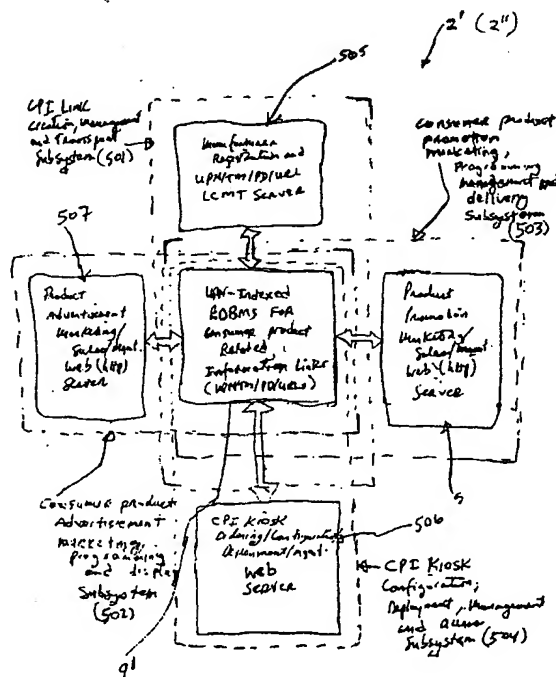 2' (2")
505
CPI LINK
Creation, Management
and Transport
Subsystem (501)
Manufacturer
Registration and
UPN/TM/PD/URL
LCMT SERVER
Consumer product
promotion
marketing,
Programming
management and
delivery
Subsystem
(503)
507
Product
Advertisement
Marketing/
Sales/Mgmt.
Web (http)
Server
UPN-Indexed
RDBMS FOR
Consumer product
Related
Information Links
(UPN/TM/PD/URLs)
Product
Promotion
Marketing/
Sales/Mgmt
Web (http)
Server
Consumer product
Advertisement
marketing,
programming
and display
Subsystem
(502)
CPI KIOSK
Ordering/Configuration
Deployment/Mgmt.
WEB
SERVER
506
CPI KIOSK
Configuration,
Deployment, Management
and access
Subsystem (504)
9'